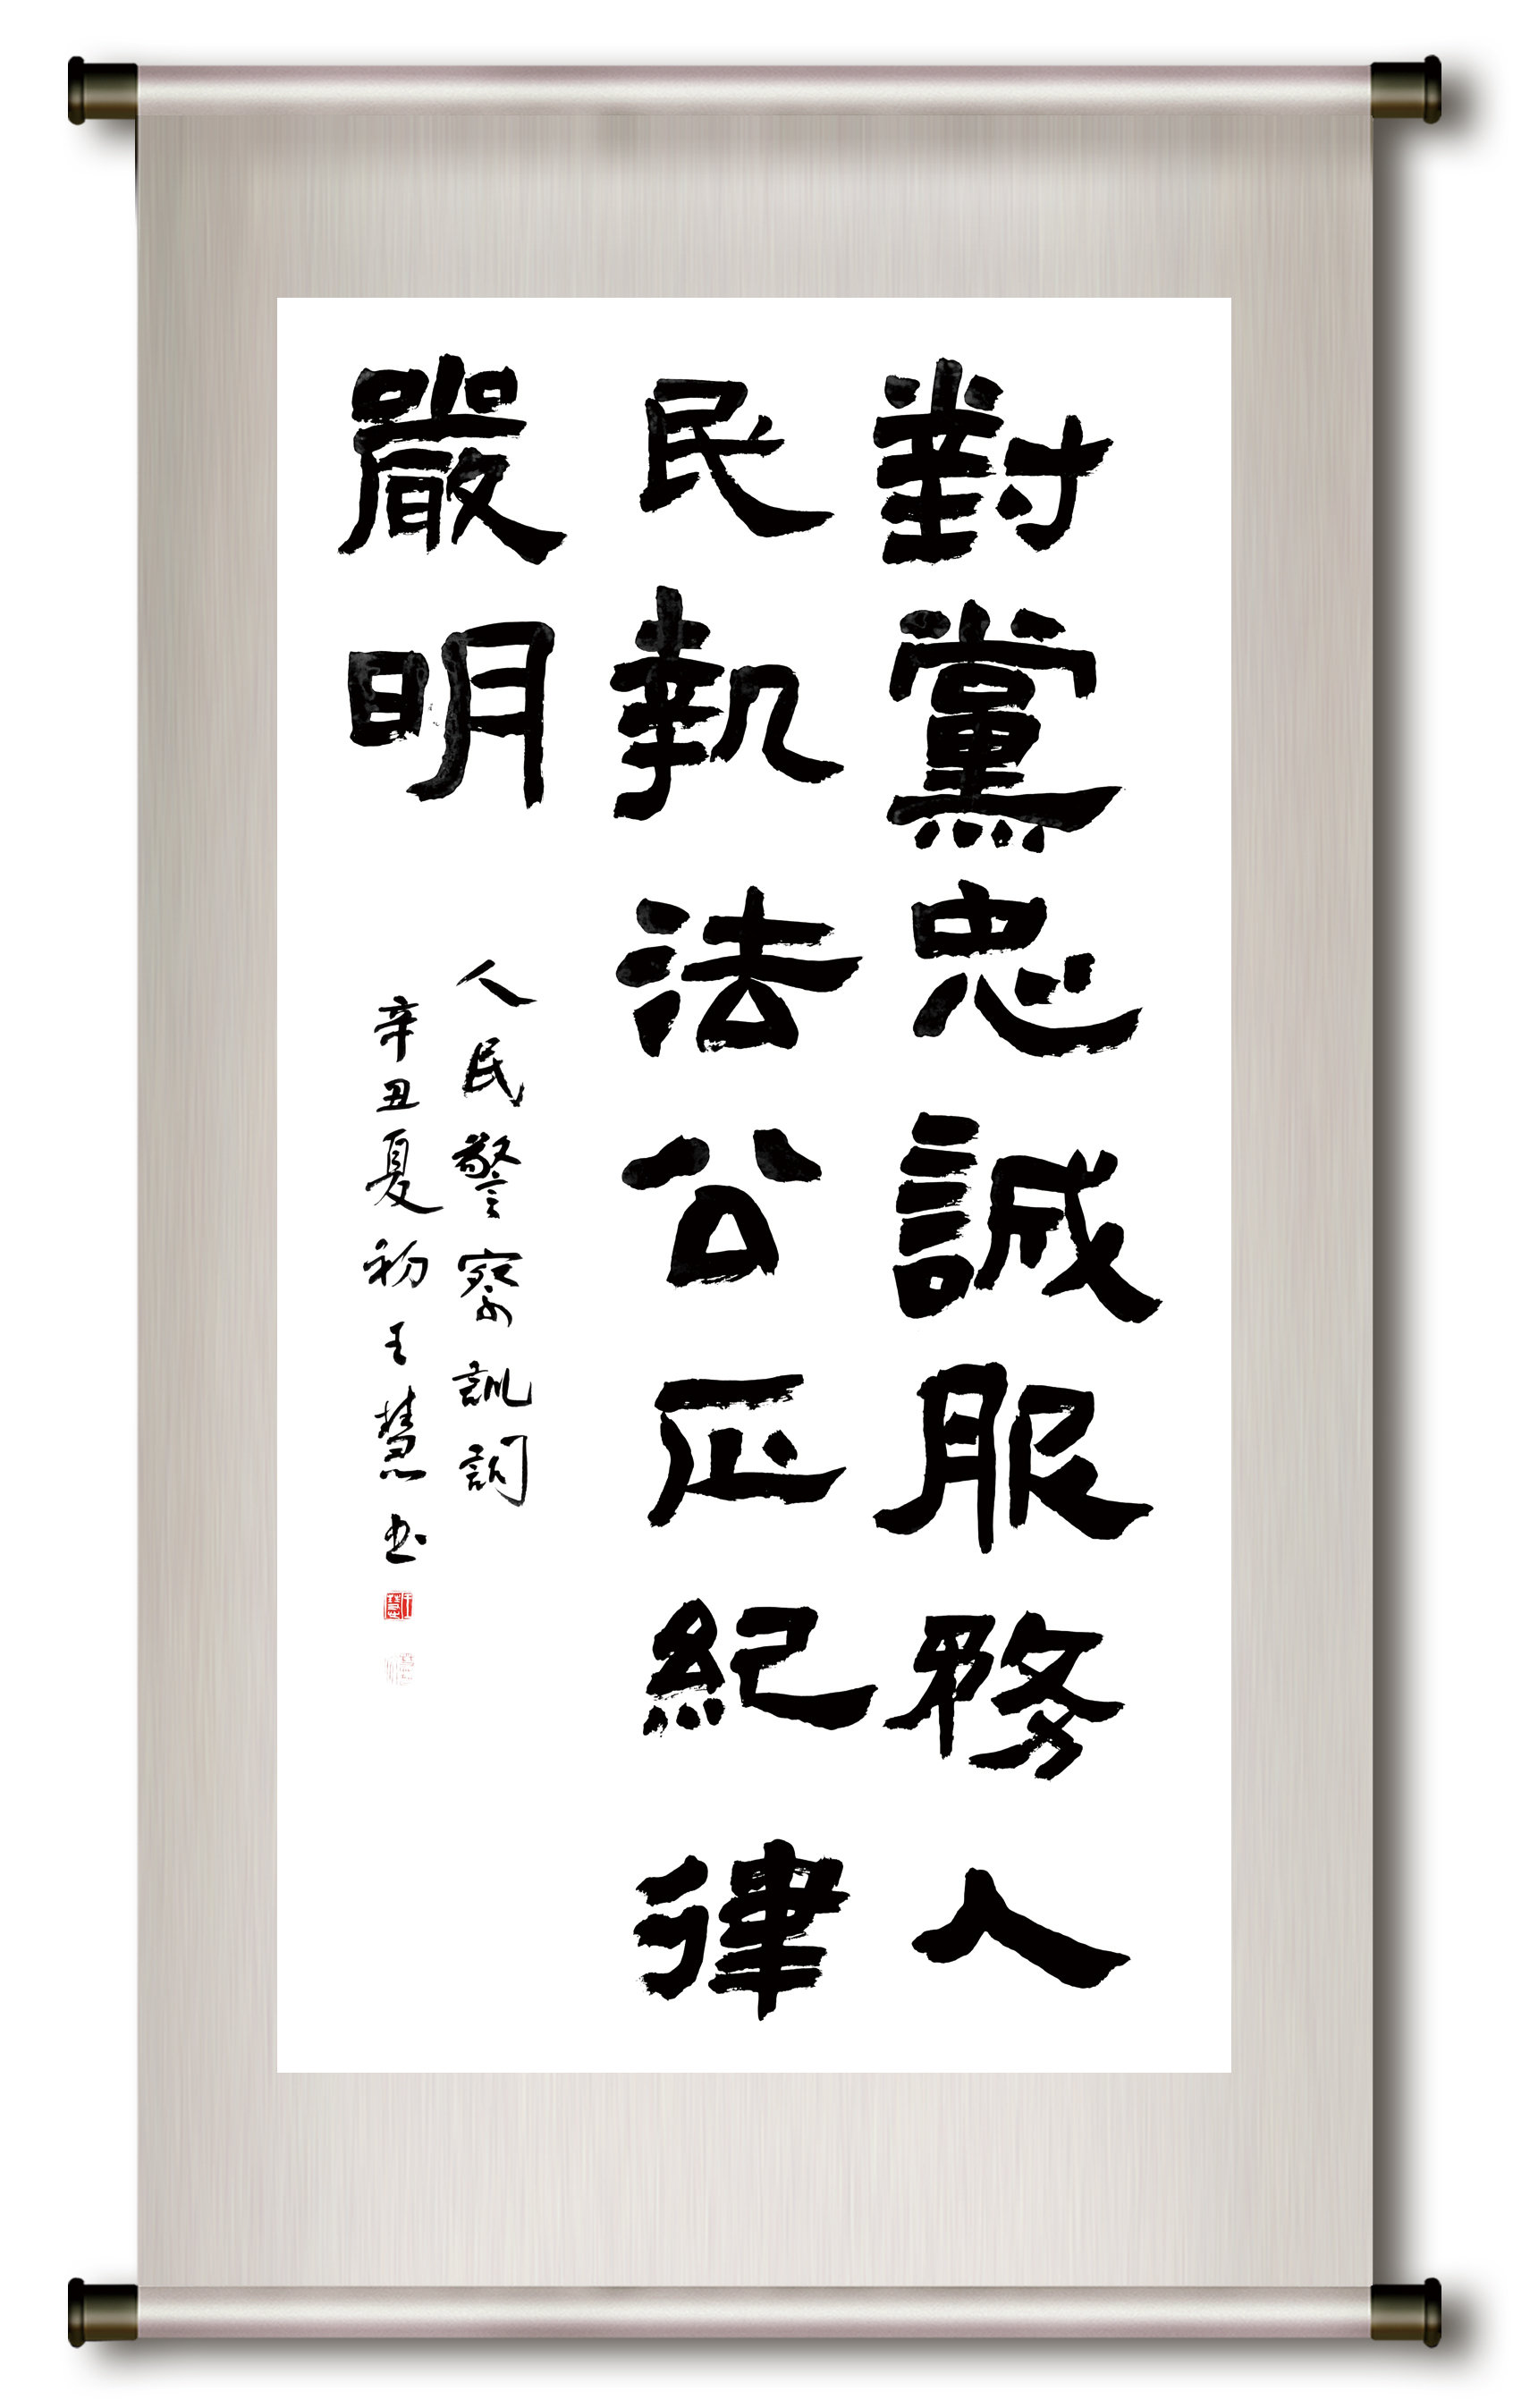 對黨忠誠服務人
民執法公正紀律
嚴明
人民警察訓詞
辛丑夏初王慧书